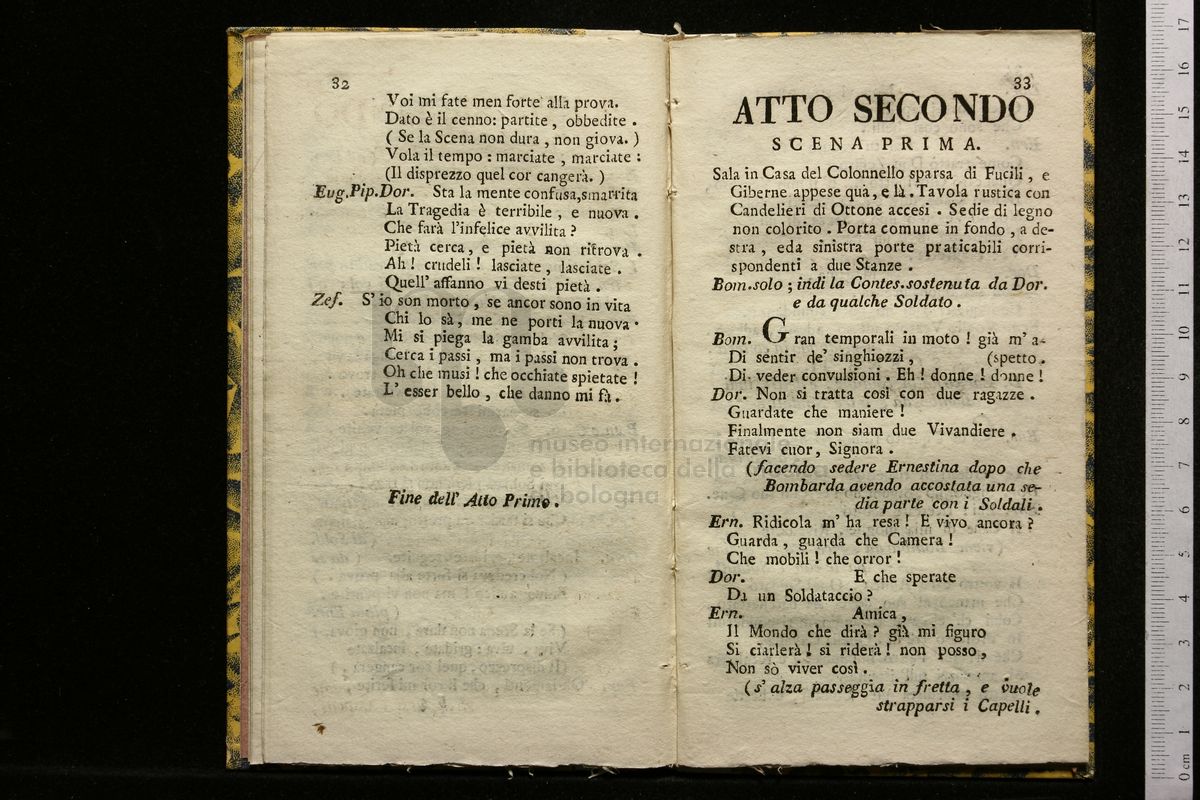 32
Voi mi fate men forte alla prova.
Dato è il cenno: partite, obbedite.
( Se la Scena non dura, non giova. )
Vola il tempo: marciate, marciate:
(Il disprezzo quel cor cangerà. )
Eug.Pip.Dor. Sta la mente confusa,smarrita
La Tragedia è terribile, e nuova.
Che farà l'infelice avvilita?
Pietà cerca, e pietà non ritrova.
Ah! crudeli! lasciate, lasciate.
Quell' affanno vi desti pietà.
Zef. S' io son morto, se ancor sono in vita
Chi lo sà, me ne porti la nuova.
Mi si piega la gamba avvilita;
Cerca i passi, ma i passi non trova.
Oh che musi! che occhiate spietate!
L' esser bello, che danno mi fà.
Fine dell' Atto Primo.
33
ATTO SECONDO
SCENA PRIMA.
Sala in Casa del Colonnello sparsa di Fucili, e
Giberne appese quà, e là. Tavola rustica con
Candelieri di Ottone accesi. Sedie di legno
non colorito. Porta comune in fondo, a de-
stra, eda sinistra porte praticabili corri-
spondenti a due Stanze.
Bom.solo; indi la Contes.sostenuta da Dor.
e da qualche Soldato.
Bom. Gran temporali in moto! già m' a-
Di sentir de' singhiozzi, (spetto.
Di veder convulsioni. Eh! donne! donne!
Dor. Non si tratta così con due ragazze.
Guardate che maniere!
Finalmente non siam due Vivandiere.
Fatevi cuor, Signora.
(facendo sedere Ernestina dopo che
Bombarda avendo accostata una se-
dia parte con i Soldali.
Ern. Ridicola m' ha resa! E vivo ancora?
Guarda, guarda che Camera!
Che mobili! che orror!
Dor. E che sperate
Da un Soldataccio?
Ern. Amica,
Il Mondo che dirà? già mi figuro
Si ciarlerà! si riderà! non posso,
Non sò viver così.
(s' alza passeggia in fretta, e vuole
strapparsi i Capelli.
museo internazionale
e biblioteca della musica
bologna
0 cm 1 2 3 4 5 6 7 8 9 10 11 12 13 14 15 16 17